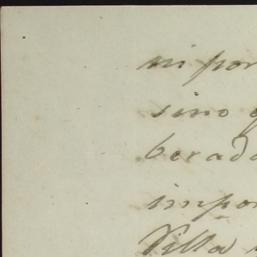 ni por
sino q
berada
impor
Villa